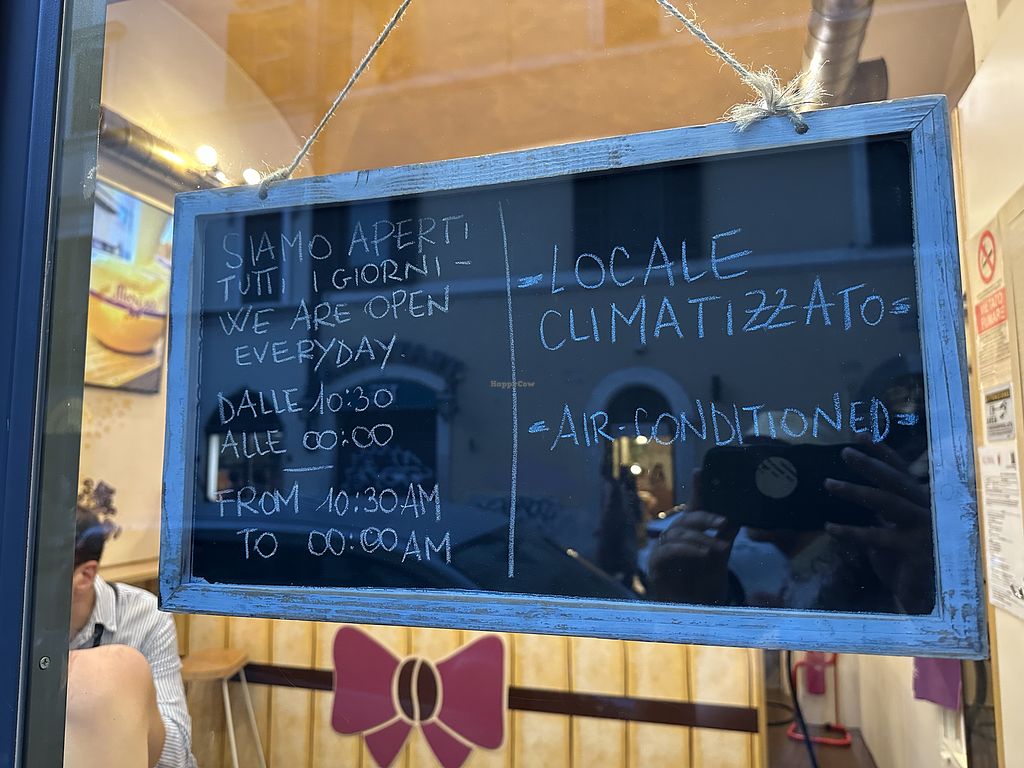 SIAMO APERTI
TUTTI I GIORNI -
WE ARE OPEN
EVERYDAY
DALLE 10:30
ALLE 00:00
FROM 10:30 AM
TO 00:00 AM
- LOCALE
CLIMATIZZATO -
- AIR-CONDITIONED -
HappyCow